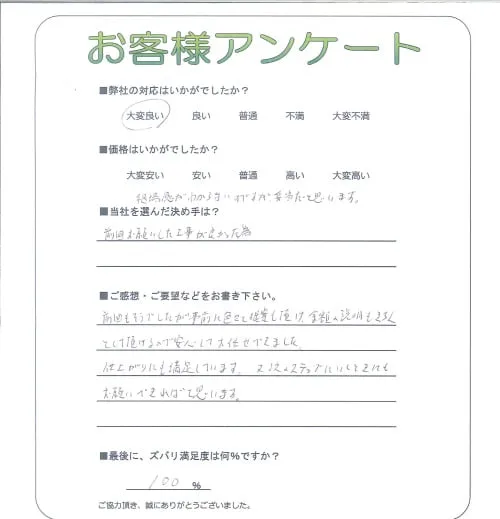 お客様アンケート
■弊社の対応はいかがでしたか？
大変良い 良い 普通 不満 大変不満
■価格はいかがでしたか？
大変安い 安い 普通 高い 大変高い
相場感がわからないですが妥当だと思います。
■当社を選んだ決め手は？
前回お願いした工事が良かった為
■ご感想・ご要望などをお書き下さい。
前回もそうでしたが事前に色々と提案も頂け、金額の説明もきちん
として頂けるので安心してお任せできました。
仕上がりにも満足しています。又次のステップ
お願いできればと思います。
■最後に、ズバリ満足度は何％ですか？
100 ％
ご協力頂き、誠にありがとうございました。